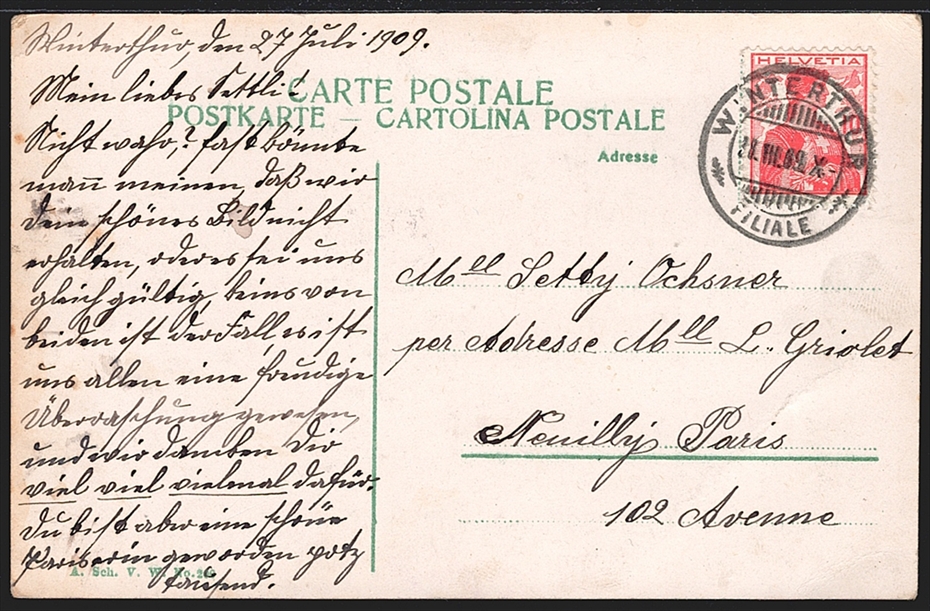 Winterthur, den 27 Juli 1909.
Mein liebes Settli!
Nicht wahr, fast könnte
man meinen, daß wir
Dein schönes Bild nicht
erhalten, oder es sei uns
gleichgültig, keins von
beiden ist der Fall, es ist
uns allen eine freudige
Überraschung gewesen,
und wir danken Dir
viel viel vielmal dafür.
Du bist aber eine schöne
Pariserin geworden potz
tausend.
CARTE POSTALE
POSTKARTE — CARTOLINA POSTALE
Adresse
HELVETIA
WINTERTHUR
FILIALE
Mll Setty Ochsner
per Adresse Mll L. Griolet
Neuilly Paris
102 Avenue
A. Sch. V. W. No.